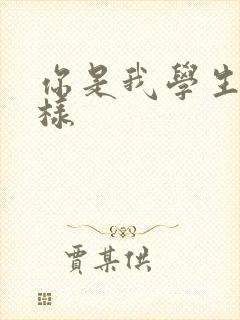 你是我學生
樣
賈某供